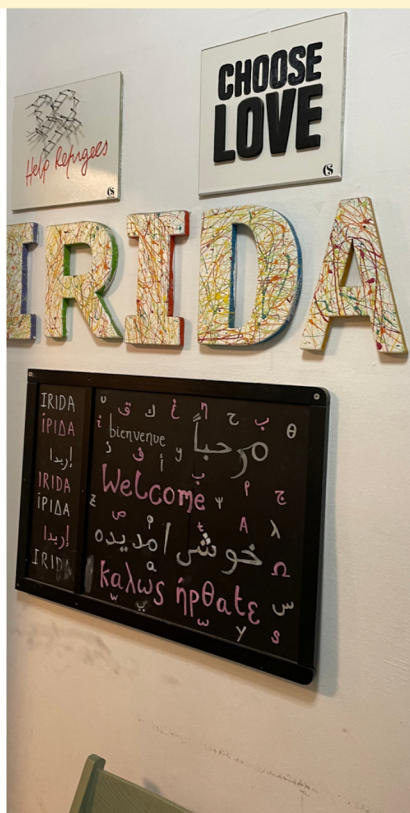 Help Refugees
CS
CHOOSE
LOVE
CS
IRIDA
IRIDA
ÍΡΙΔΑ
إريدا
IRIDA
ÍΡΙΔΑ
إريدا
IRIDA
bienvenue
مرحباً
Welcome
خوش امدیده
καλως ήρθατε